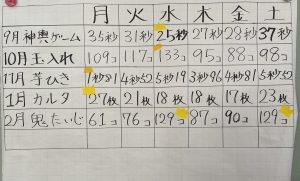 月 火 水 木 金 土
9月神輿ゲーム 35秒 31秒 25秒 27秒 28秒 37秒
10月玉入れ 109コ 117コ 133コ 95コ 88コ 98コ
11月芋ひき 4秒81 4秒52 5秒19 3秒96 4秒81 5秒52
1月カルタ 27枚 21枚 18枚 18枚 17枚 23枚
2月鬼たいじ 61コ 76コ 129コ 87コ 90コ 129コ